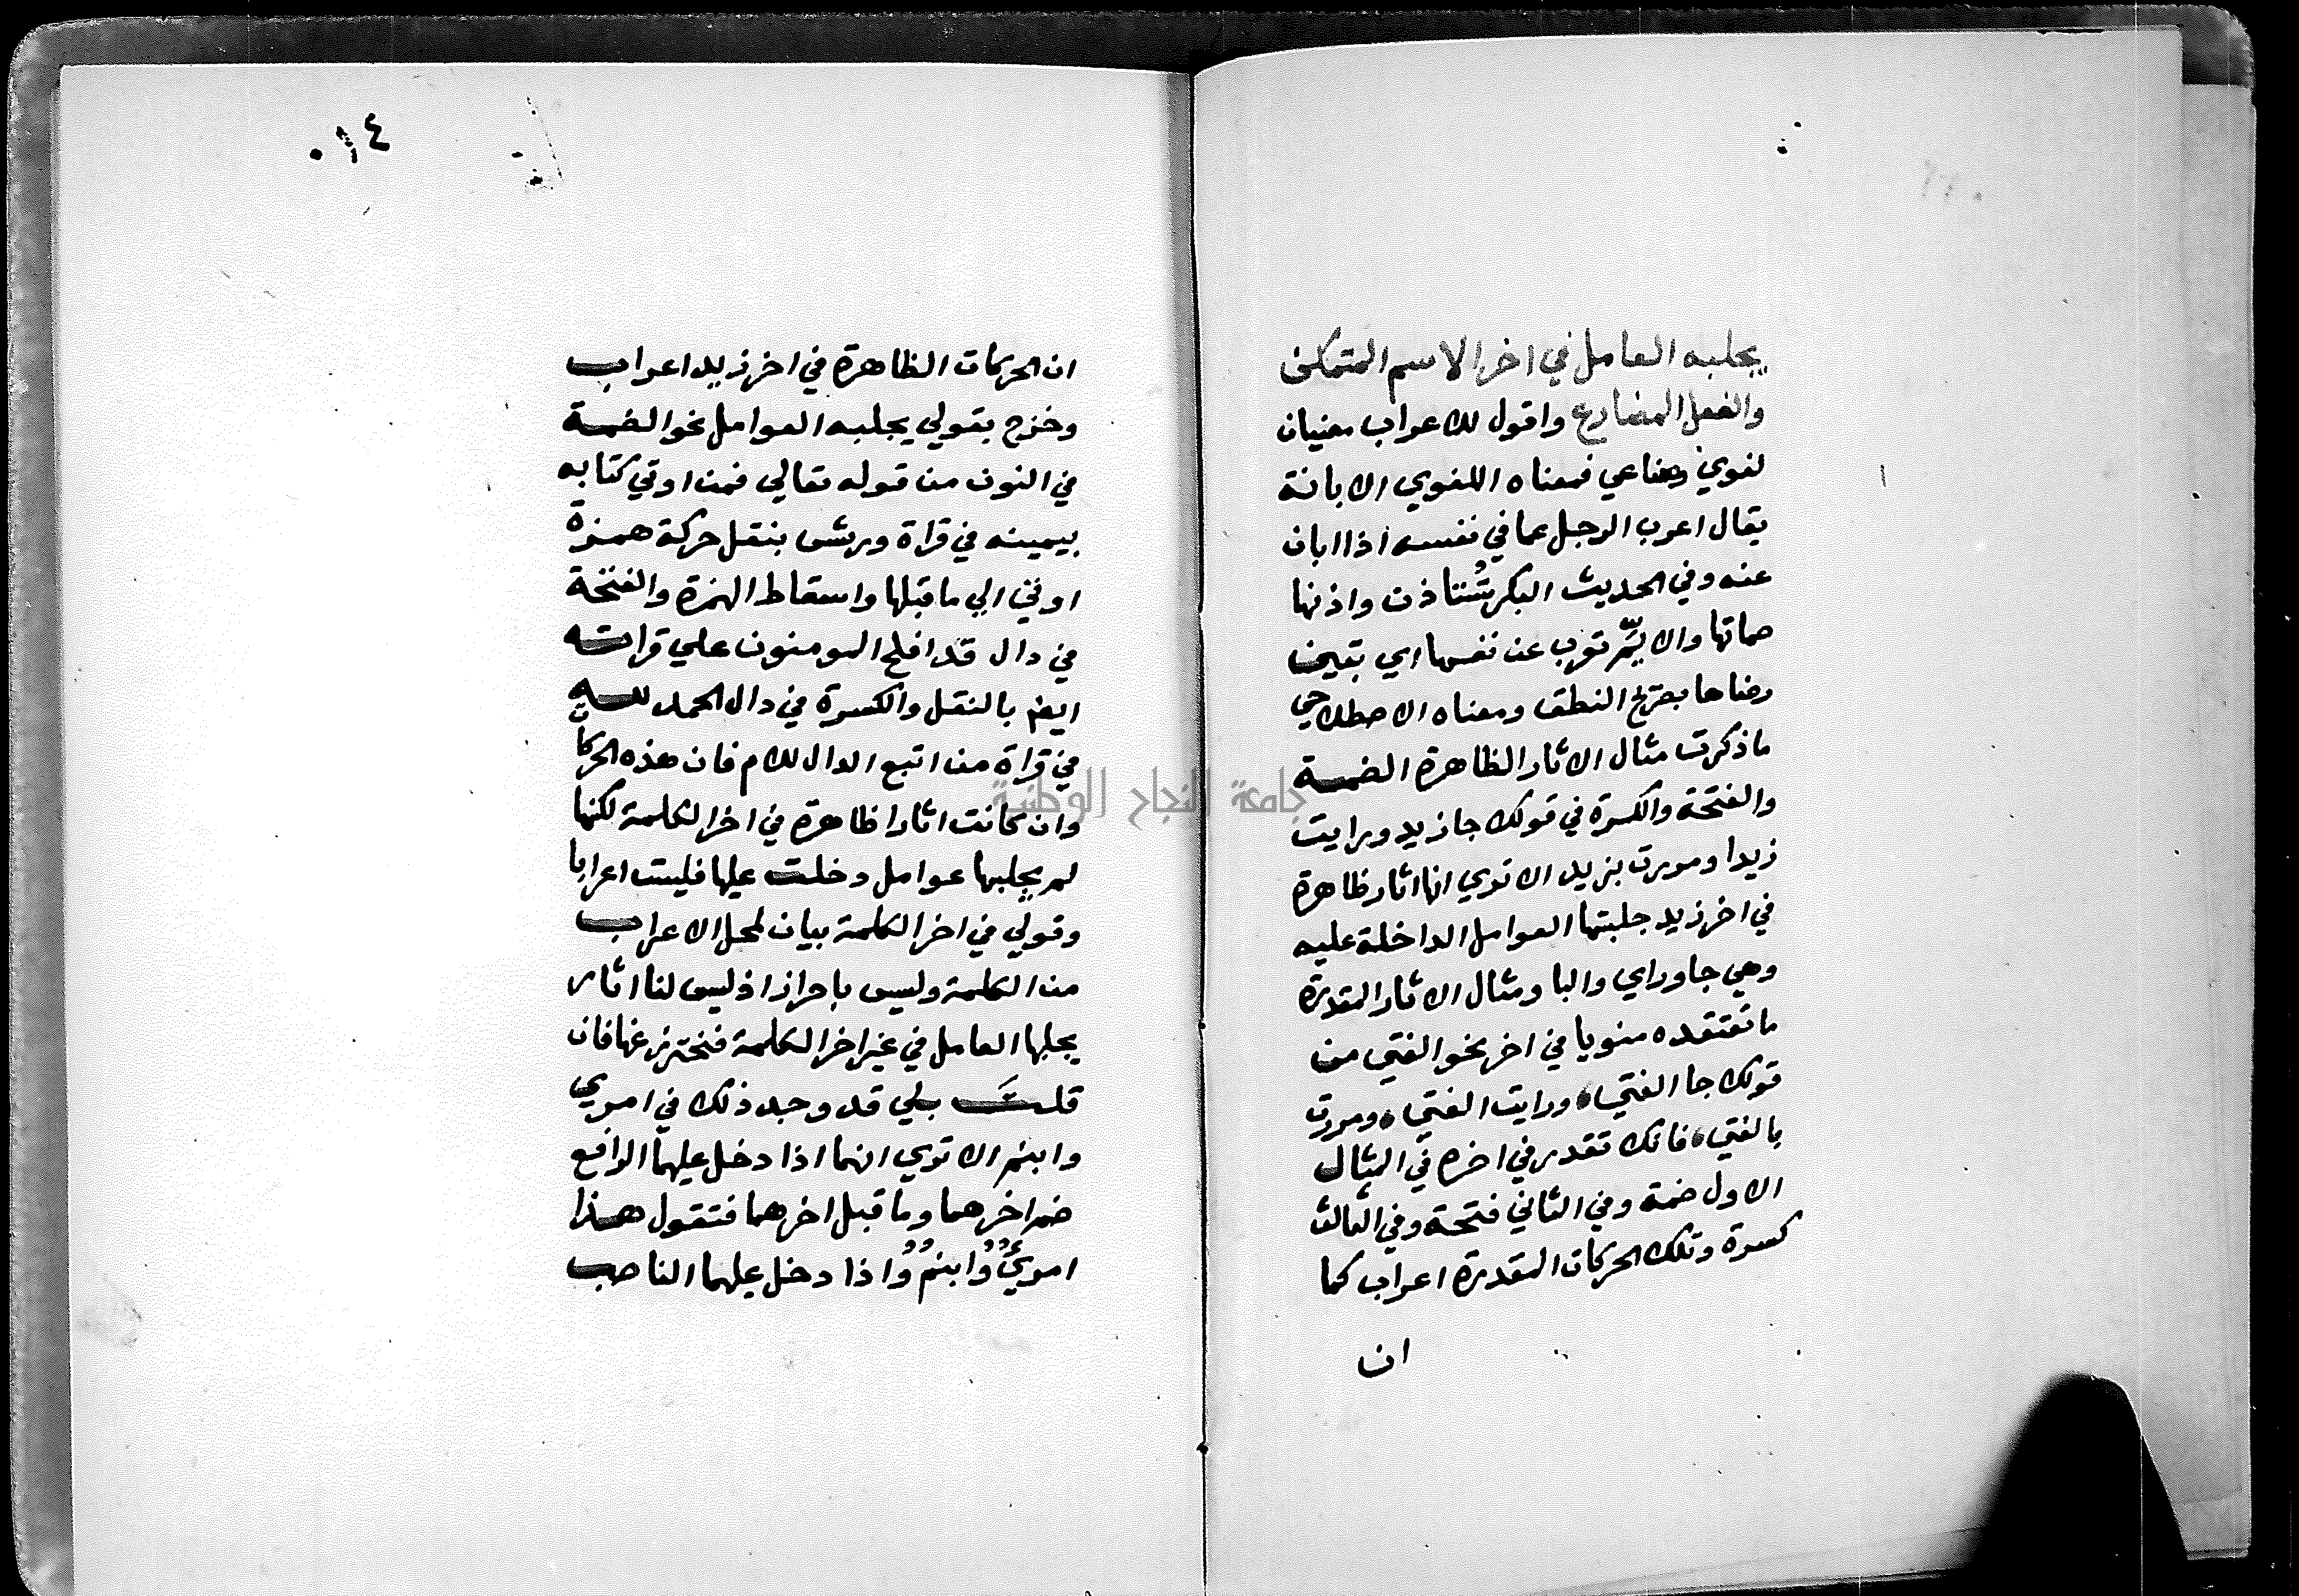 يجلبه العامل في اخر الاسم المتمكن
والفعل المضارع واقول للاعراب معنيان
لغوي وصناعي فمعناه اللغوي الابانة
يقال اعرب الرجل عما في نفسه اذا ابان
عنه وفي الحديث البكر تُستاذن واذنها
صماتها والايّم تعرب عن نفسها اي تبين
رضاها بصريح النطق ومعناه الاصطلاحي
ما ذكرت مثال الاثار الظاهرة الضمة
والفتحة والكسرة في قولك جا زيد ورايت
زيدا ومررت بزيد الا تري انها اثار ظاهرة
في اخر زيد جلبتها العوامل الداخلة عليه
وهي جا وراي والبا ومثال الاثار المقدرة
ما تعتقده منويا في اخر نحو الفتي من
قولك جا الفتي ورايت الفتي ومررت
بالفتي فانك تقدر في اخره في المثال
الاول ضمة وفي الثاني فتحة وفي الثالث
كسرة وتلك الحركات المقدرة اعراب كما
ان
٠١٤
ان الحركات الظاهرة في اخر زيد اعراب
وخرج بقولي يجلبه العوامل نحو الضمة
في النون من قوله تعالي فمن اوتي كتابه
بيمينه في قراة ورش بنقل حركة همزة
اوتي الي ما قبلها واسقاط الهمزة والفتحة
في دال قد افلح المومنون علي قراته
ايضا بالنقل والكسرة في دال الحمد لله
في قراة من اتبع الدال للام فان هذه الحركات
وان كانت اثارا ظاهرة في اخر الكلمة لكنها
لم يجلبها عوامل دخلت عليها فليست اعرابا
وقولي في اخر الكلمة بيان لمحل الاعراب
من الكلمة وليس باحراز اذ ليس لنا اثار
يجلبها العامل في غير اخر الكلمة فنحترز عنها فان
قلت بلي قد وجد ذلك في امري
وابنم الا تري انهما اذا دخل عليهما الرافع
ضم اخرهما وما قبل اخرهما فتقول هذا
امرؤٌ وابنمٌ واذا دخل عليهما الناصب
جامعة النجاح الوطنية